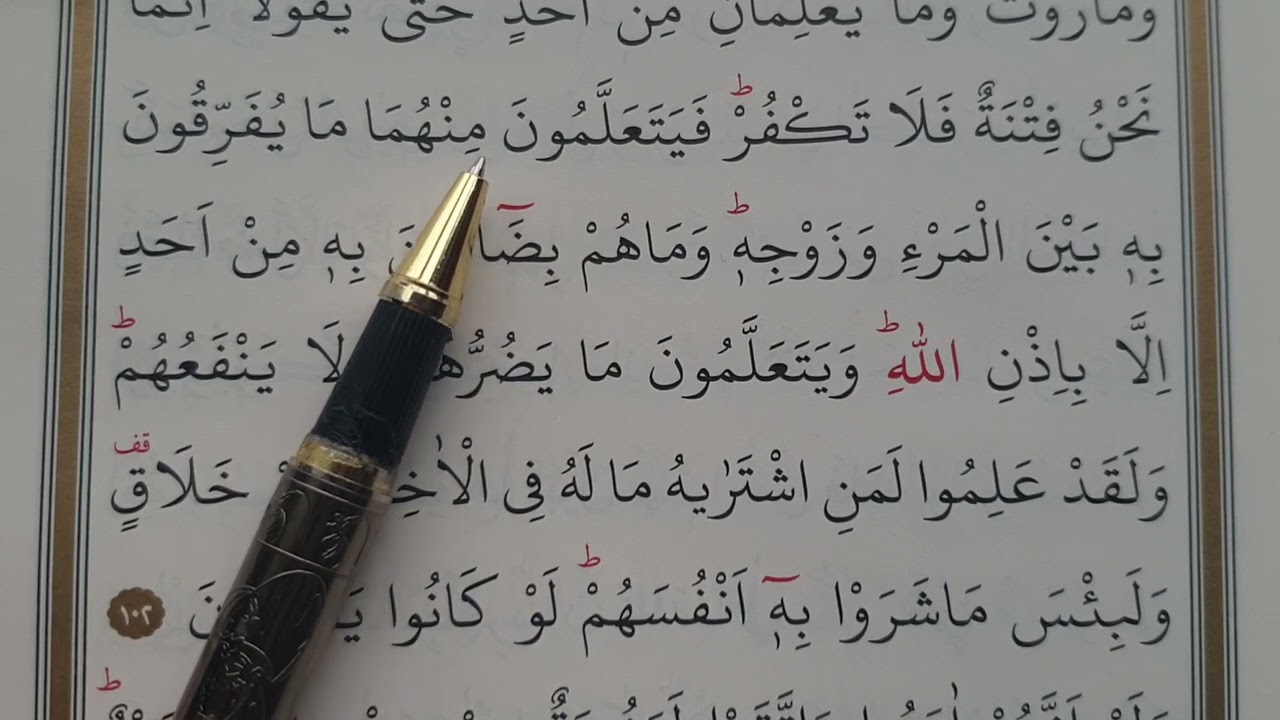 وَمَارُوتَ وَمَا يُعَلِّمَانِ مِنْ اَحَدٍ حَتّٰى يَقُولَا اِنَّمَا
نَحْنُ فِتْنَةٌ فَلَا تَكْفُرْۜ فَيَتَعَلَّمُونَ مِنْهُمَا مَا يُفَرِّقُونَ
بِهٖ بَيْنَ الْمَرْءِ وَزَوْجِهٖۜ وَمَاهُمْ بِهٖ مِنْ اَحَدٍ
اِلَّا بِاِذْنِ اللّٰهِۜ وَيَتَعَلَّمُونَ مَا لَا يَنْفَعُهُمْۜ
وَلَقَدْ عَلِمُوا لَمَنِ اشْتَرٰيهُ مَا لَهُ فِى خَلَاقٍ قف
وَلَبِئْسَ مَاشَرَوْا بِهٖٓ اَنْفُسَهُمْۜ لَوْ كَانُوا ١٠٢